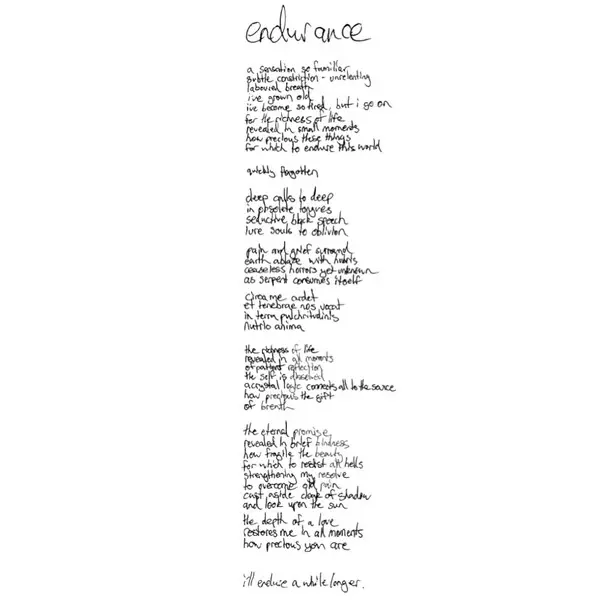 endurance
a sensation so familiar
subtle constriction - unrelenting
laboured breath
i've grown old
i've become so tired, but i go on
for the richness of life
revealed in small moments
how precious these things
for which to endure this world
quickly forgotten
deep calls to deep
in obsolete tongues
seductive black speech
lure souls to oblivion
pain and grief surround
earth ablaze with
ceaseless horrors yet unknown
as serpent consumes itself
circa me ardet
et tenebrae nos vocat
in terra pulchritudinis
nutrilo anima
the richness of life
revealed in all moments
of patient reflection
the self is absolved
a crystal logic connects all to the source
how precious the gift
of breath
the eternal promise
revealed in brief kindness
how fragile the beauty
for which to resist all hells
strengthening my resolve
to overcome old pain
cast aside cloak of shadow
and look upon the sun
the depth of a love
restores me in all moments
how precious you are
i'll endure a while longer.